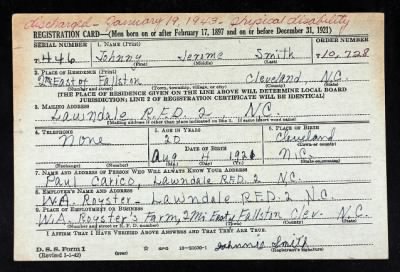 discharged - January 19, 1943 - Physical disability
REGISTRATION CARD—(Men born on or after February 17, 1897 and on or before December 31, 1921)
SERIAL NUMBER
1. NAME (Print)
ORDER NUMBER
446
Johnny Jerome Smith
10,728
(First) (Middle) (Last)
2. PLACE OF RESIDENCE (Print)
East of Fallston Cleveland, N.C.
(Number and street) (Town, township, village, or city) (County) (State)
[THE PLACE OF RESIDENCE GIVEN ON THE LINE ABOVE WILL DETERMINE LOCAL BOARD
JURISDICTION; LINE 2 OF REGISTRATION CERTIFICATE WILL BE IDENTICAL]
3. MAILING ADDRESS
Lawndale R.F.D. 2, N.C.
[Mailing address if other than place indicated on line 2. If same insert word same]
4. TELEPHONE
5. AGE IN YEARS
6. PLACE OF BIRTH
None
20
Cleveland
DATE OF BIRTH
(Town or county)
Aug 4 1921
N.C.
(Exchange) (Number)
(Mo.) (Day) (Yr.)
(State or country)
7. NAME AND ADDRESS OF PERSON WHO WILL ALWAYS KNOW YOUR ADDRESS
Paul Carico, Lawndale RFD. 2 N.C.
8. EMPLOYER'S NAME AND ADDRESS
W.A. Royster - Lawndale R.F.D. 2 N.C.
9. PLACE OF EMPLOYMENT OR BUSINESS
W.A. Royster's Farm, 2 Mi East Fallston Clev. N.C.
(Number and street or R. F. D. number) (Town) (County) (State)
I AFFIRM THAT I HAVE VERIFIED ABOVE ANSWERS AND THAT THEY ARE TRUE.
D. S. S. Form 1
(Revised 1-1-42)
GPO
Johnnie Smith
(Registrant's signature)